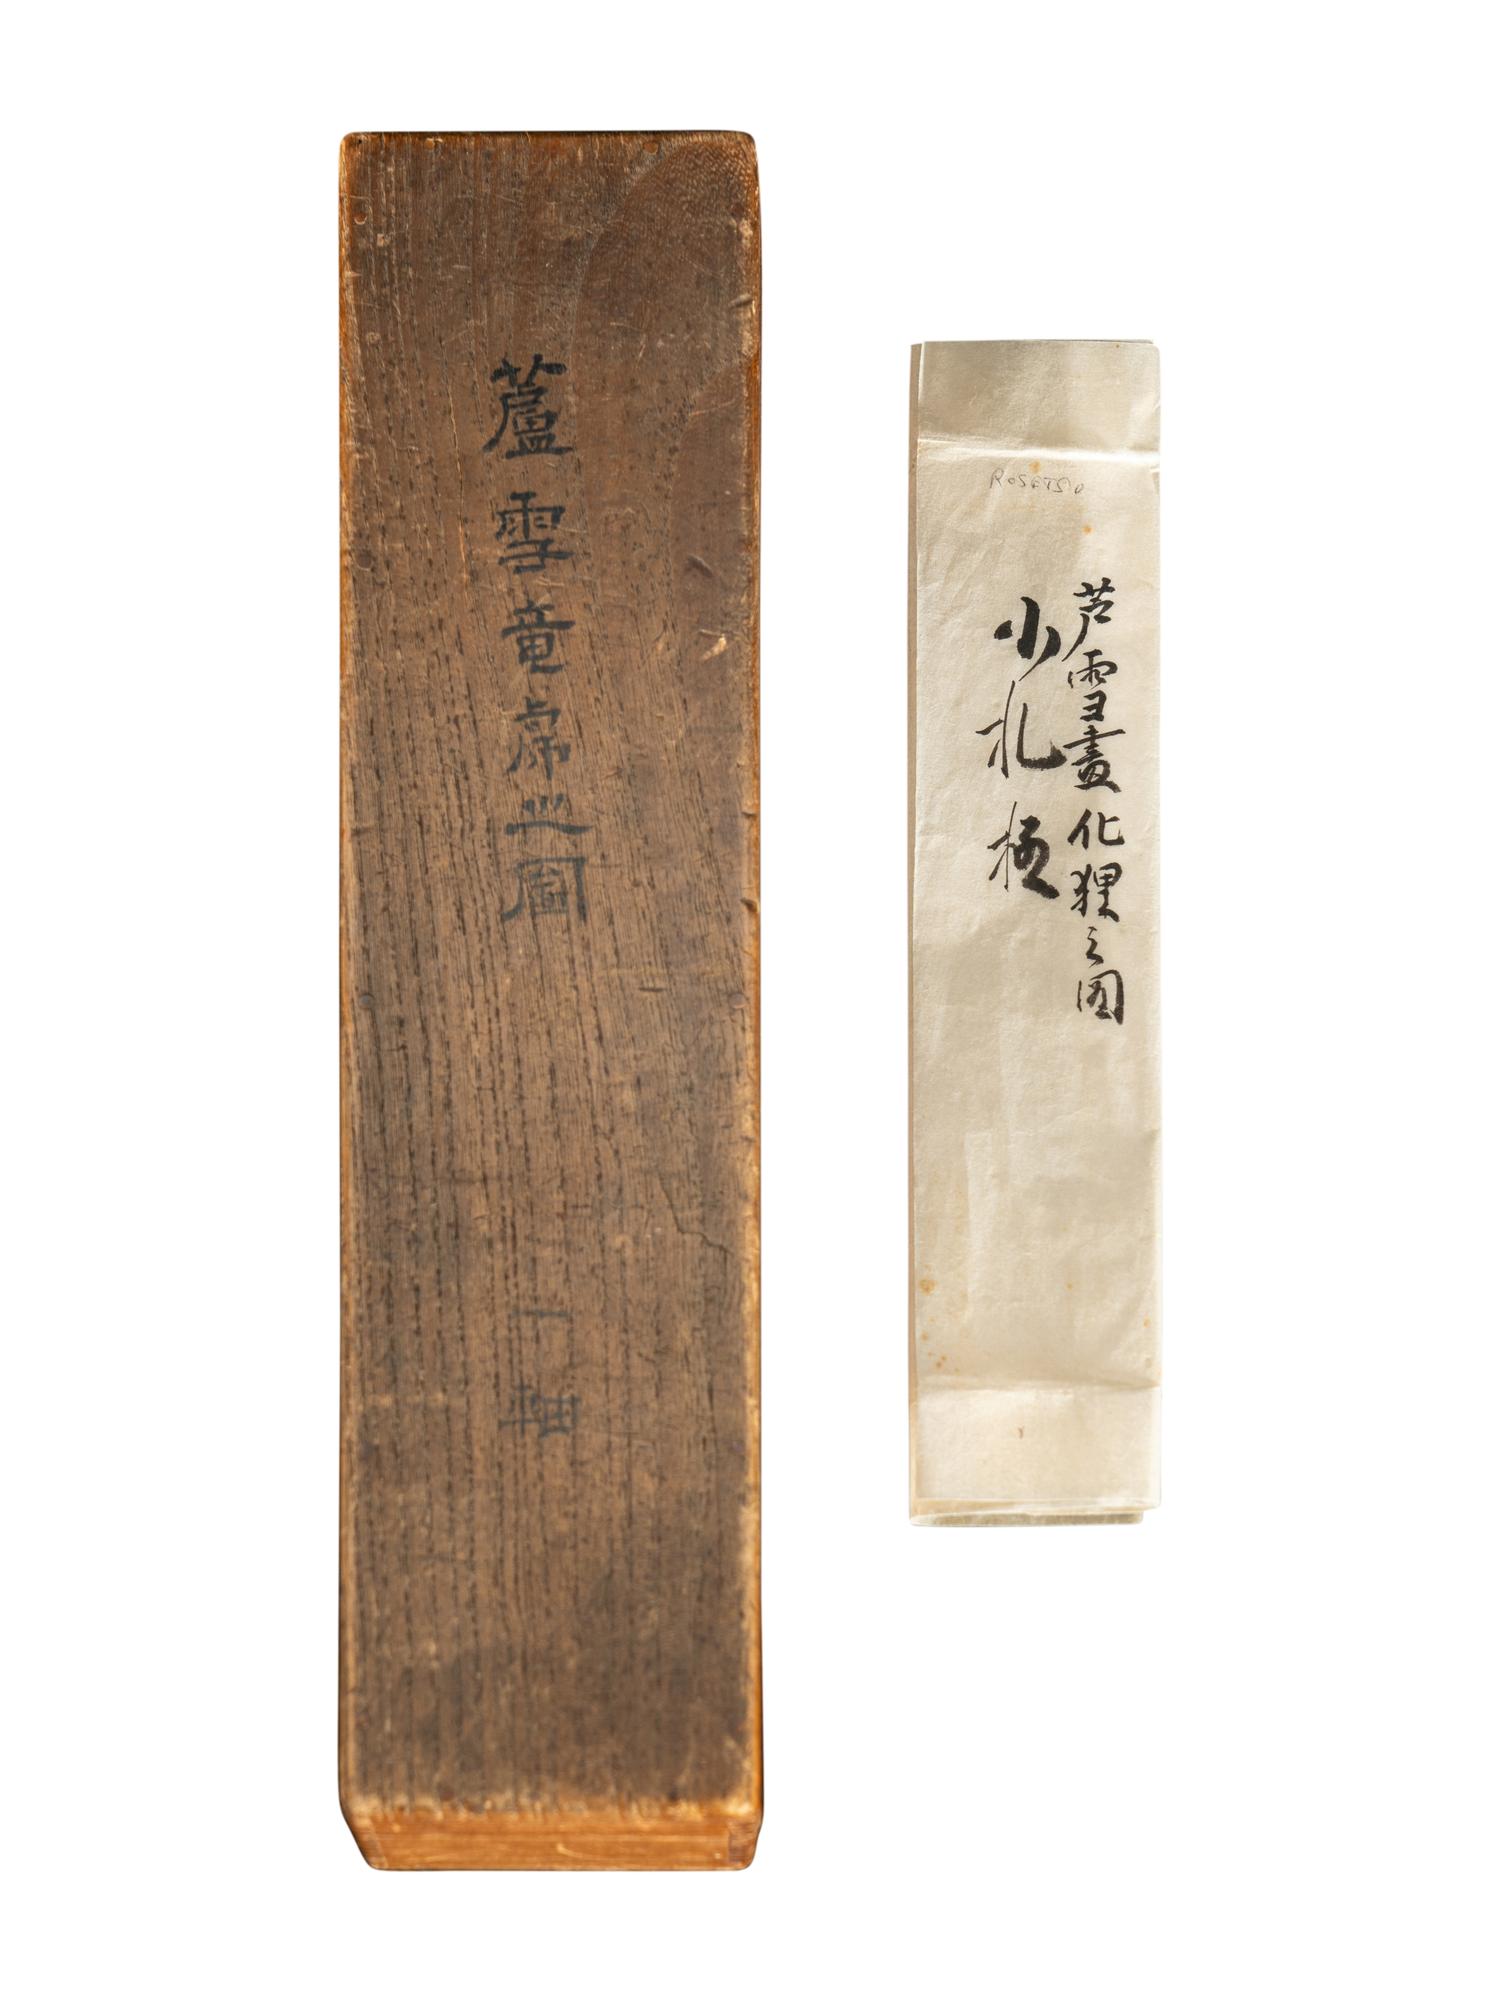 蘆雪竜虎之圖
一軸
ROSETSU
芦雪畫化狸之図
小札極